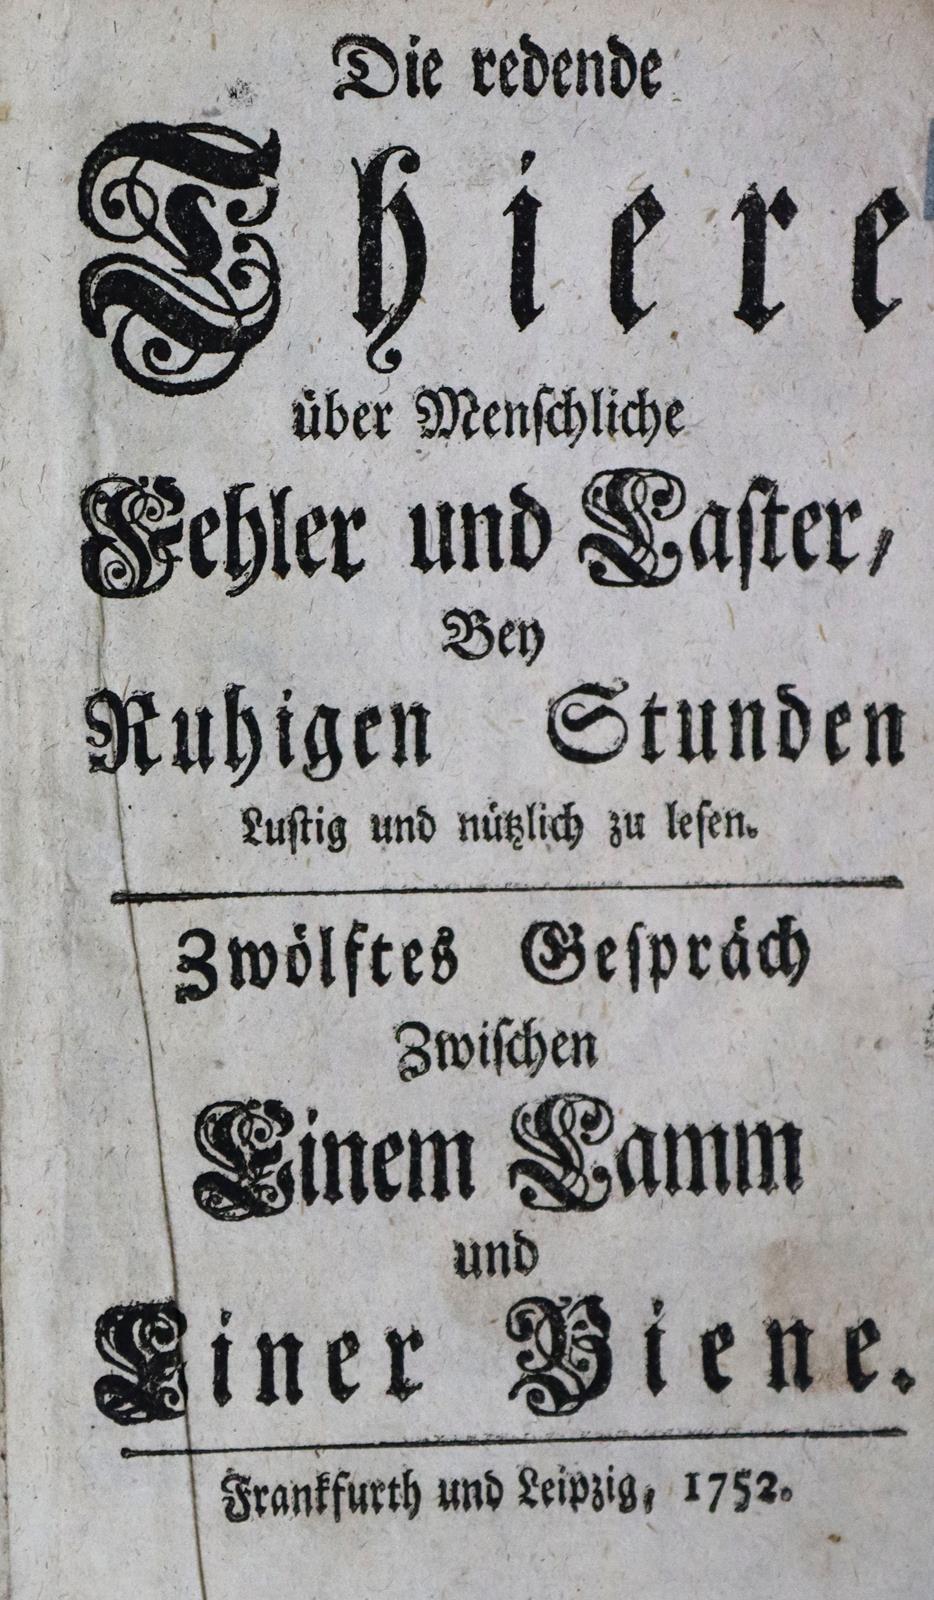 Die redende
Thiere
über Menſchliche
Fehler und Laſter,
Bey
Ruhigen Stunden
Luſtig und nützlich zu leſen.
Zwölftes Geſpräch
Zwiſchen
Einem Lamm
und
Einer Biene.
Frankfurth und Leipzig, 1752.